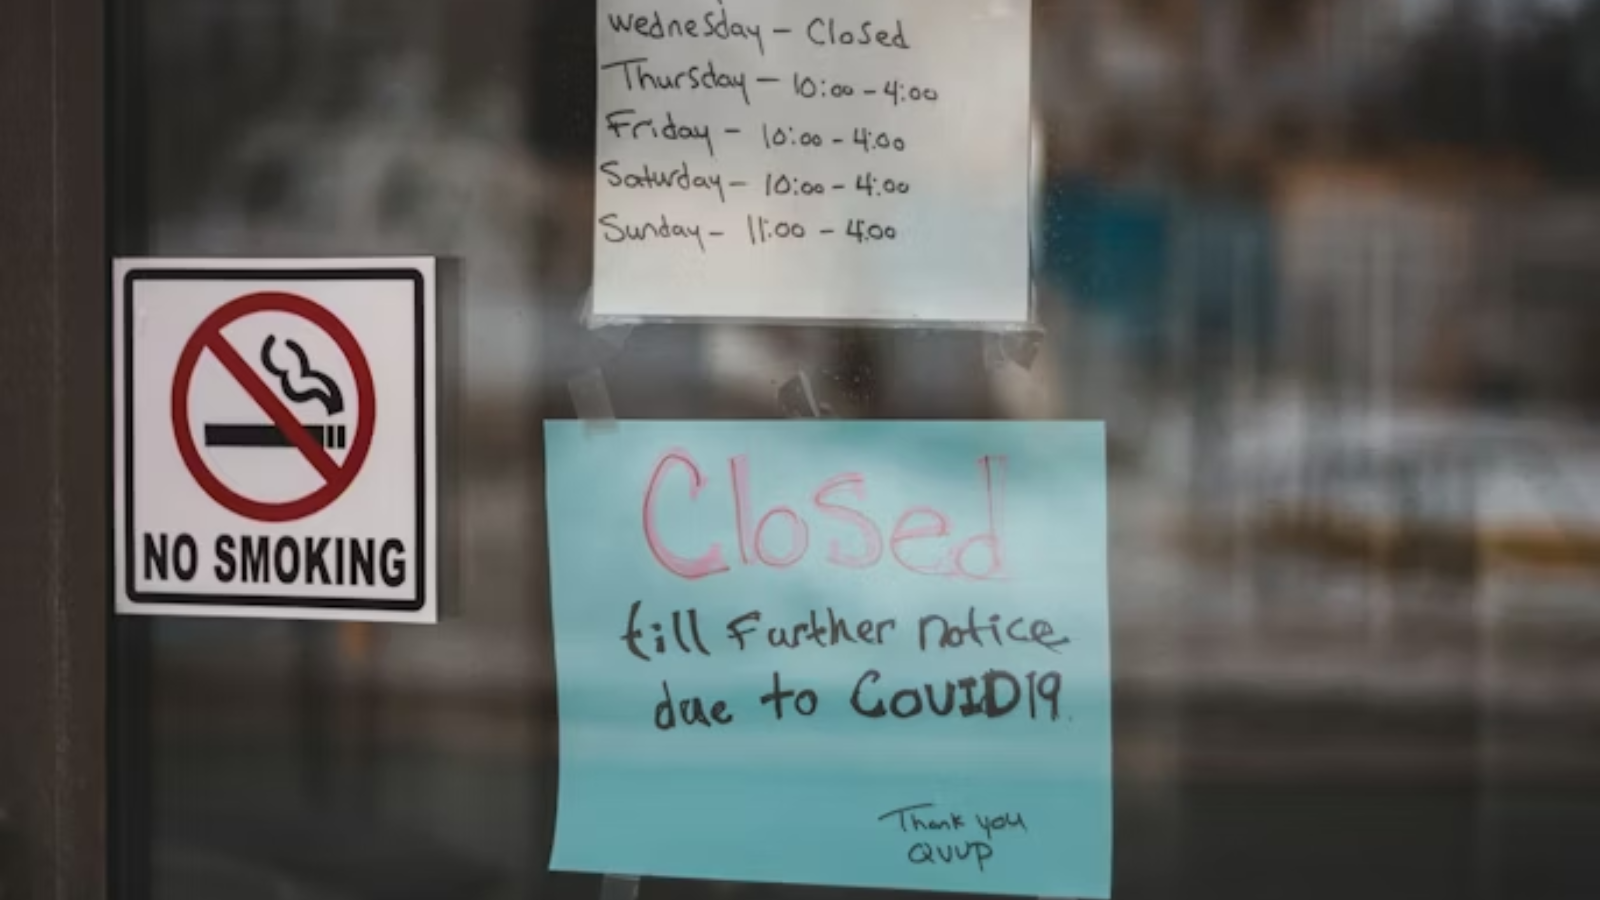 Wednesday - Closed
Thursday - 10:00 - 4:00
Friday - 10:00 - 4:00
Saturday - 10:00 - 4:00
Sunday - 11:00 - 4:00
NO SMOKING
Closed
till Further notice
due to COVID19.
Thank you
QVVP